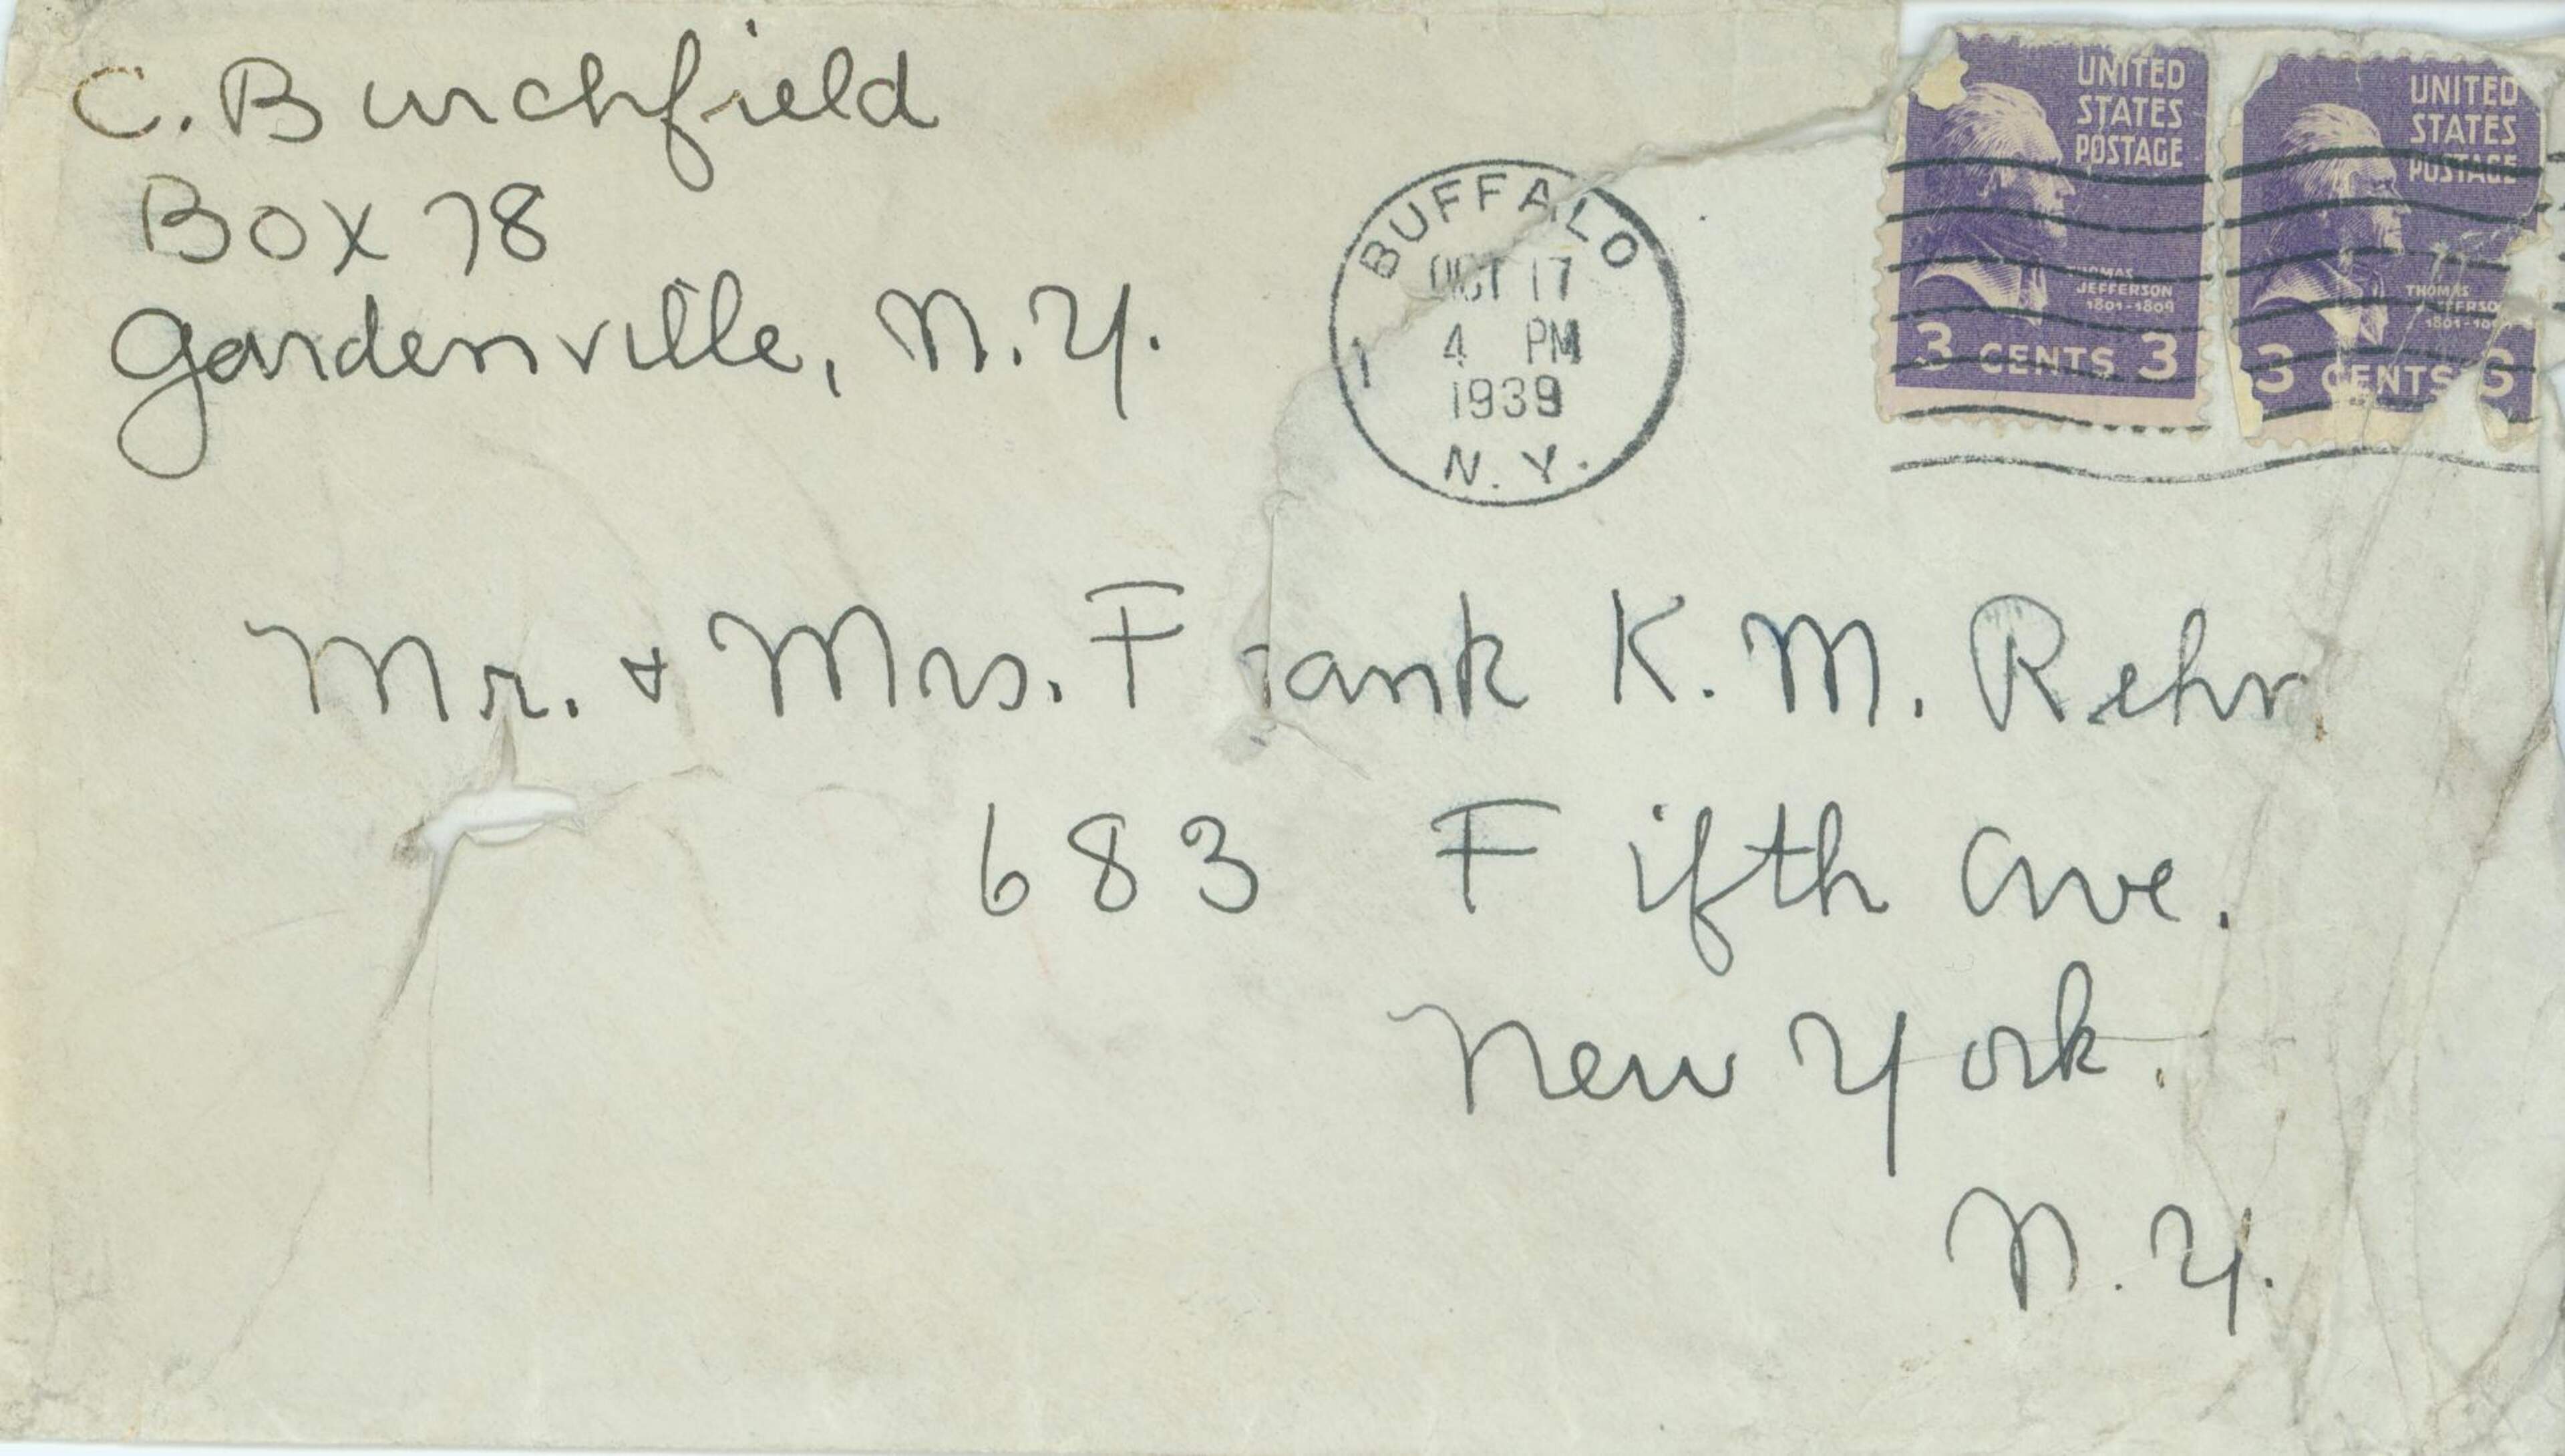 C. Burchfield
Box 78
Gardenville, N.Y.
BUFFALO
OCT 17
4 PM
1939
N.Y.
1
UNITED
STATES
POSTAGE
THOMAS
JEFFERSON
1801-1809
3 CENTS 3
UNITED
STATES
POSTAGE
THOMAS
JEFFERSO
1801-180
3 CENTS 3
Mr. & Mrs. Frank K. M. Rehn
683 Fifth Ave.
New York.
N.Y.